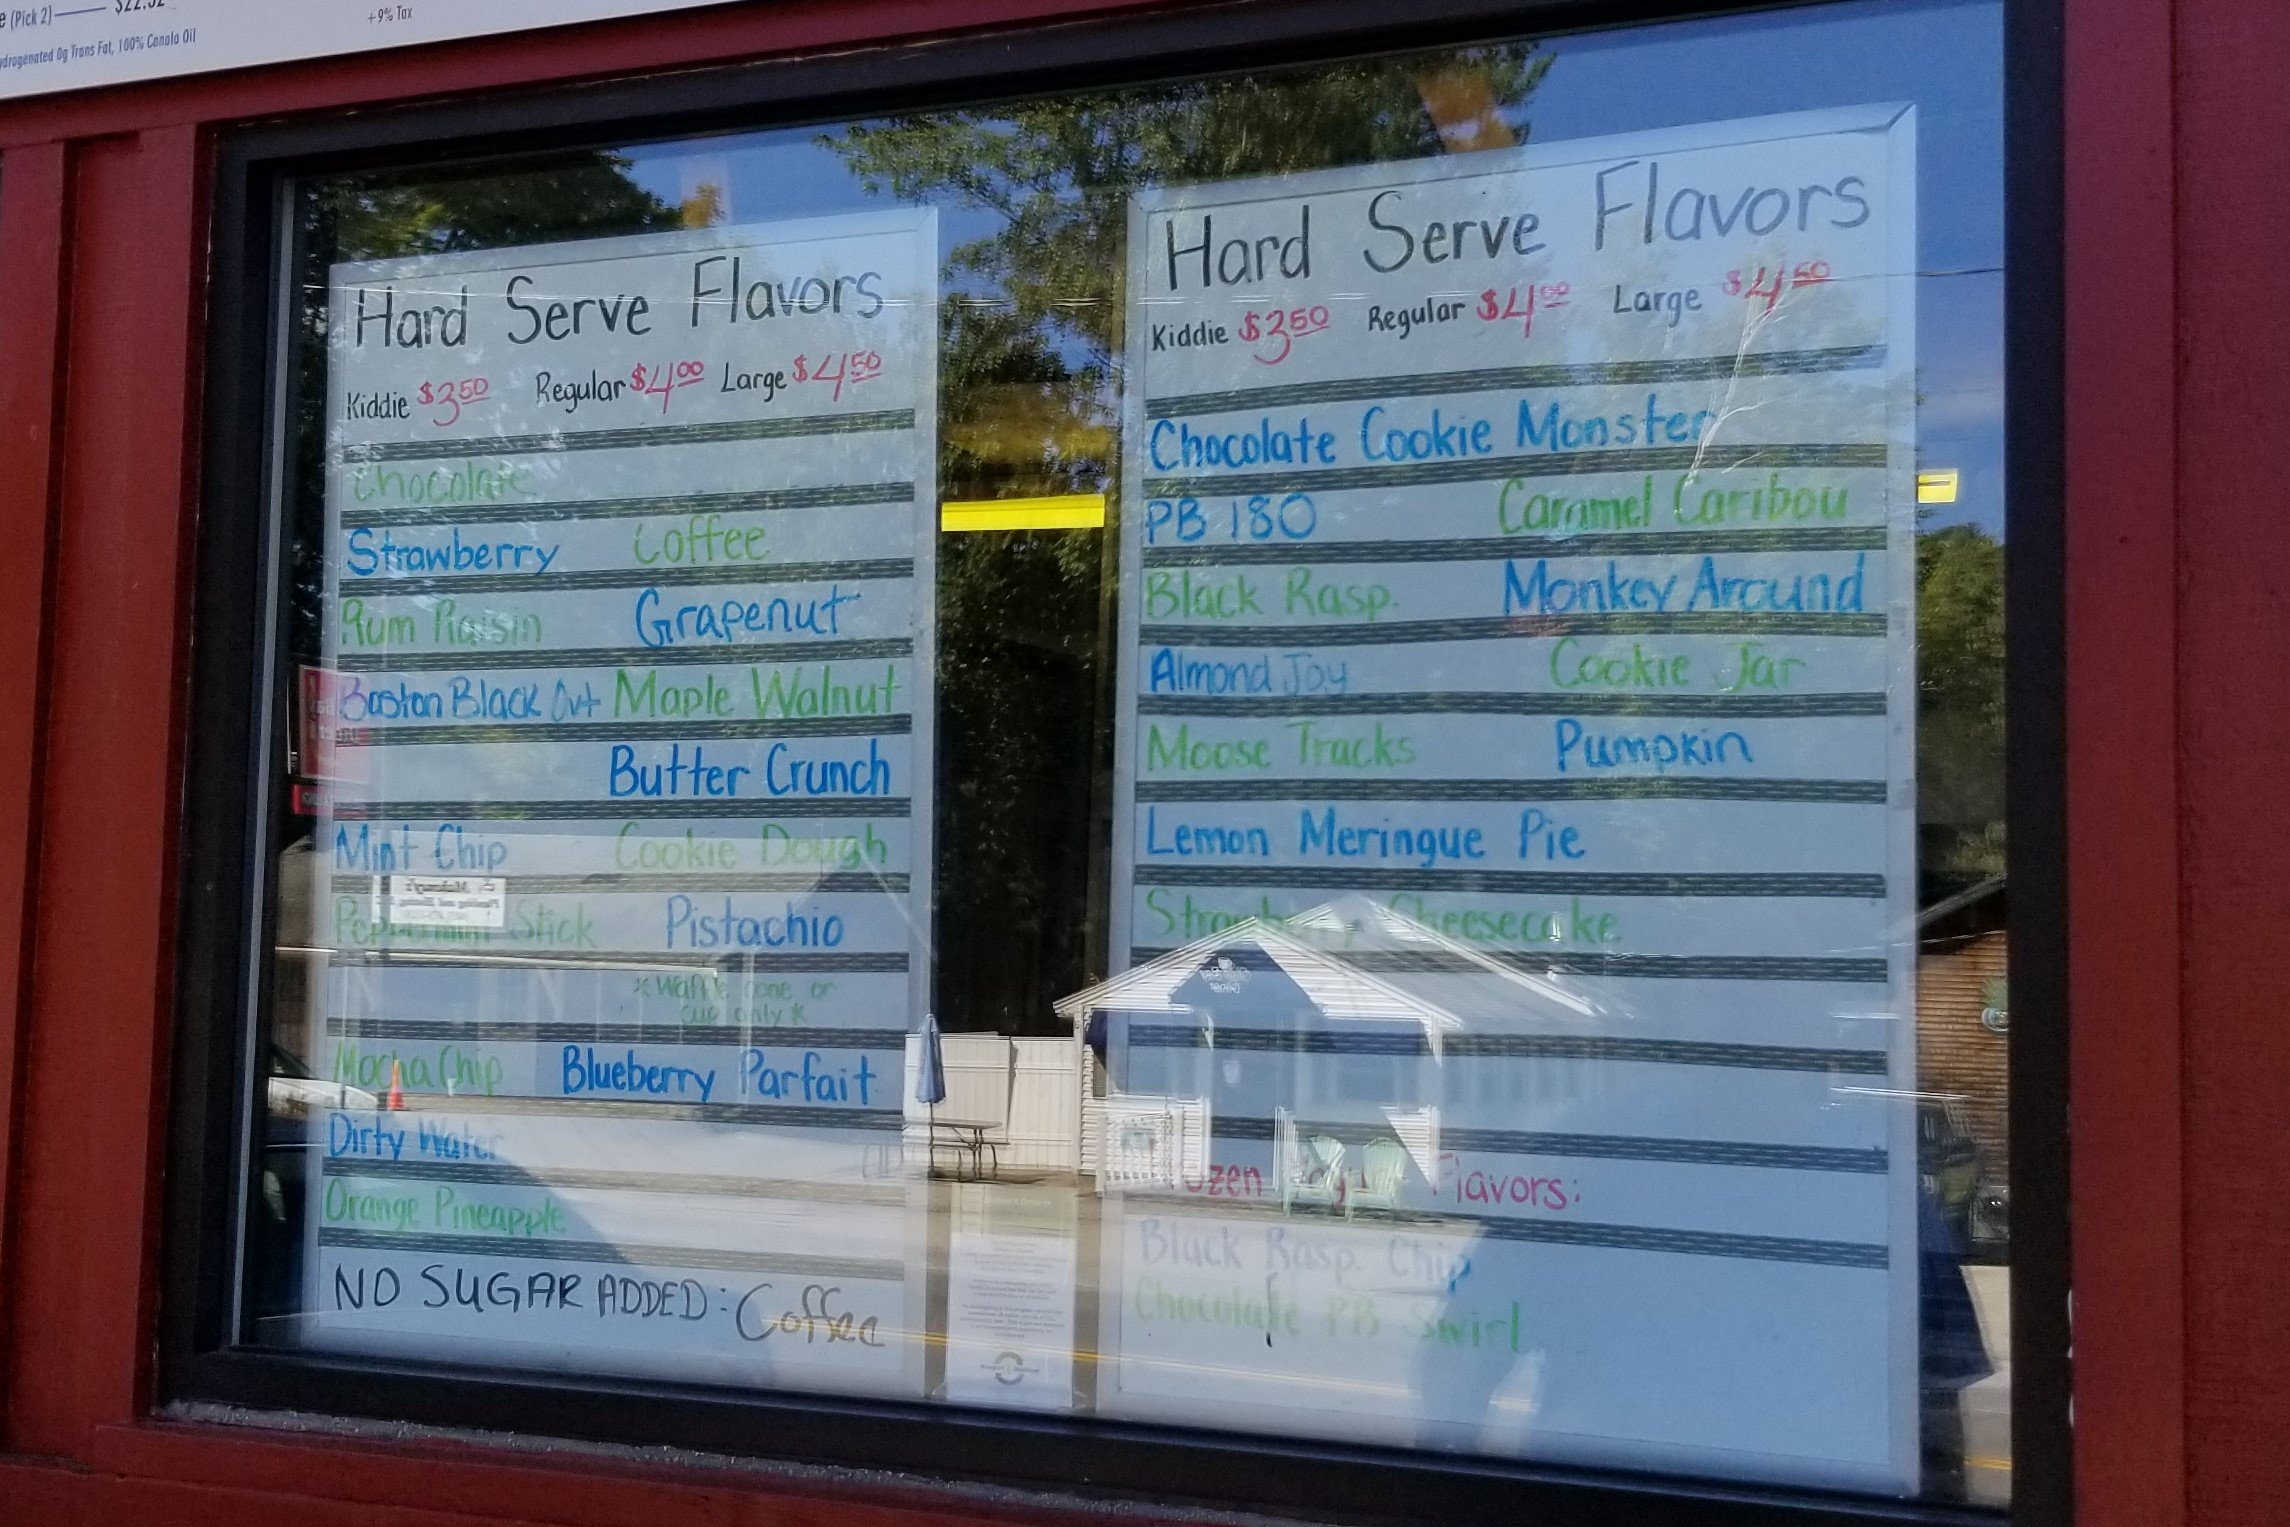 (Pick 2) $22.52
+9% Tax
0g Trans Fat, 100% Canola Oil
Hard Serve Flavors
Kiddie $3.50 Regular $4.00 Large $4.50
Chocolate
Strawberry Coffee
Rum Raisin Grapenut
Boston Black Out Maple Walnut
Butter Crunch
Mint Chip Cookie Dough
Peppermint Stick Pistachio
* Waffle cone or
cup only *
Mocha Chip Blueberry Parfait
Dirty Water
Orange Pineapple
NO SUGAR ADDED: Coffee
Hard Serve Flavors
Kiddie $3.50 Regular $4.00 Large $4.50
Chocolate Cookie Monster
PB 180 Caramel Caribou
Black Rasp. Monkey Around
Almond Joy Cookie Jar
Moose Tracks Pumpkin
Lemon Meringue Pie
Strawberry Cheesecake
Frozen Yogurt Flavors:
Black Rasp. Chip
Chocolate PB Swirl